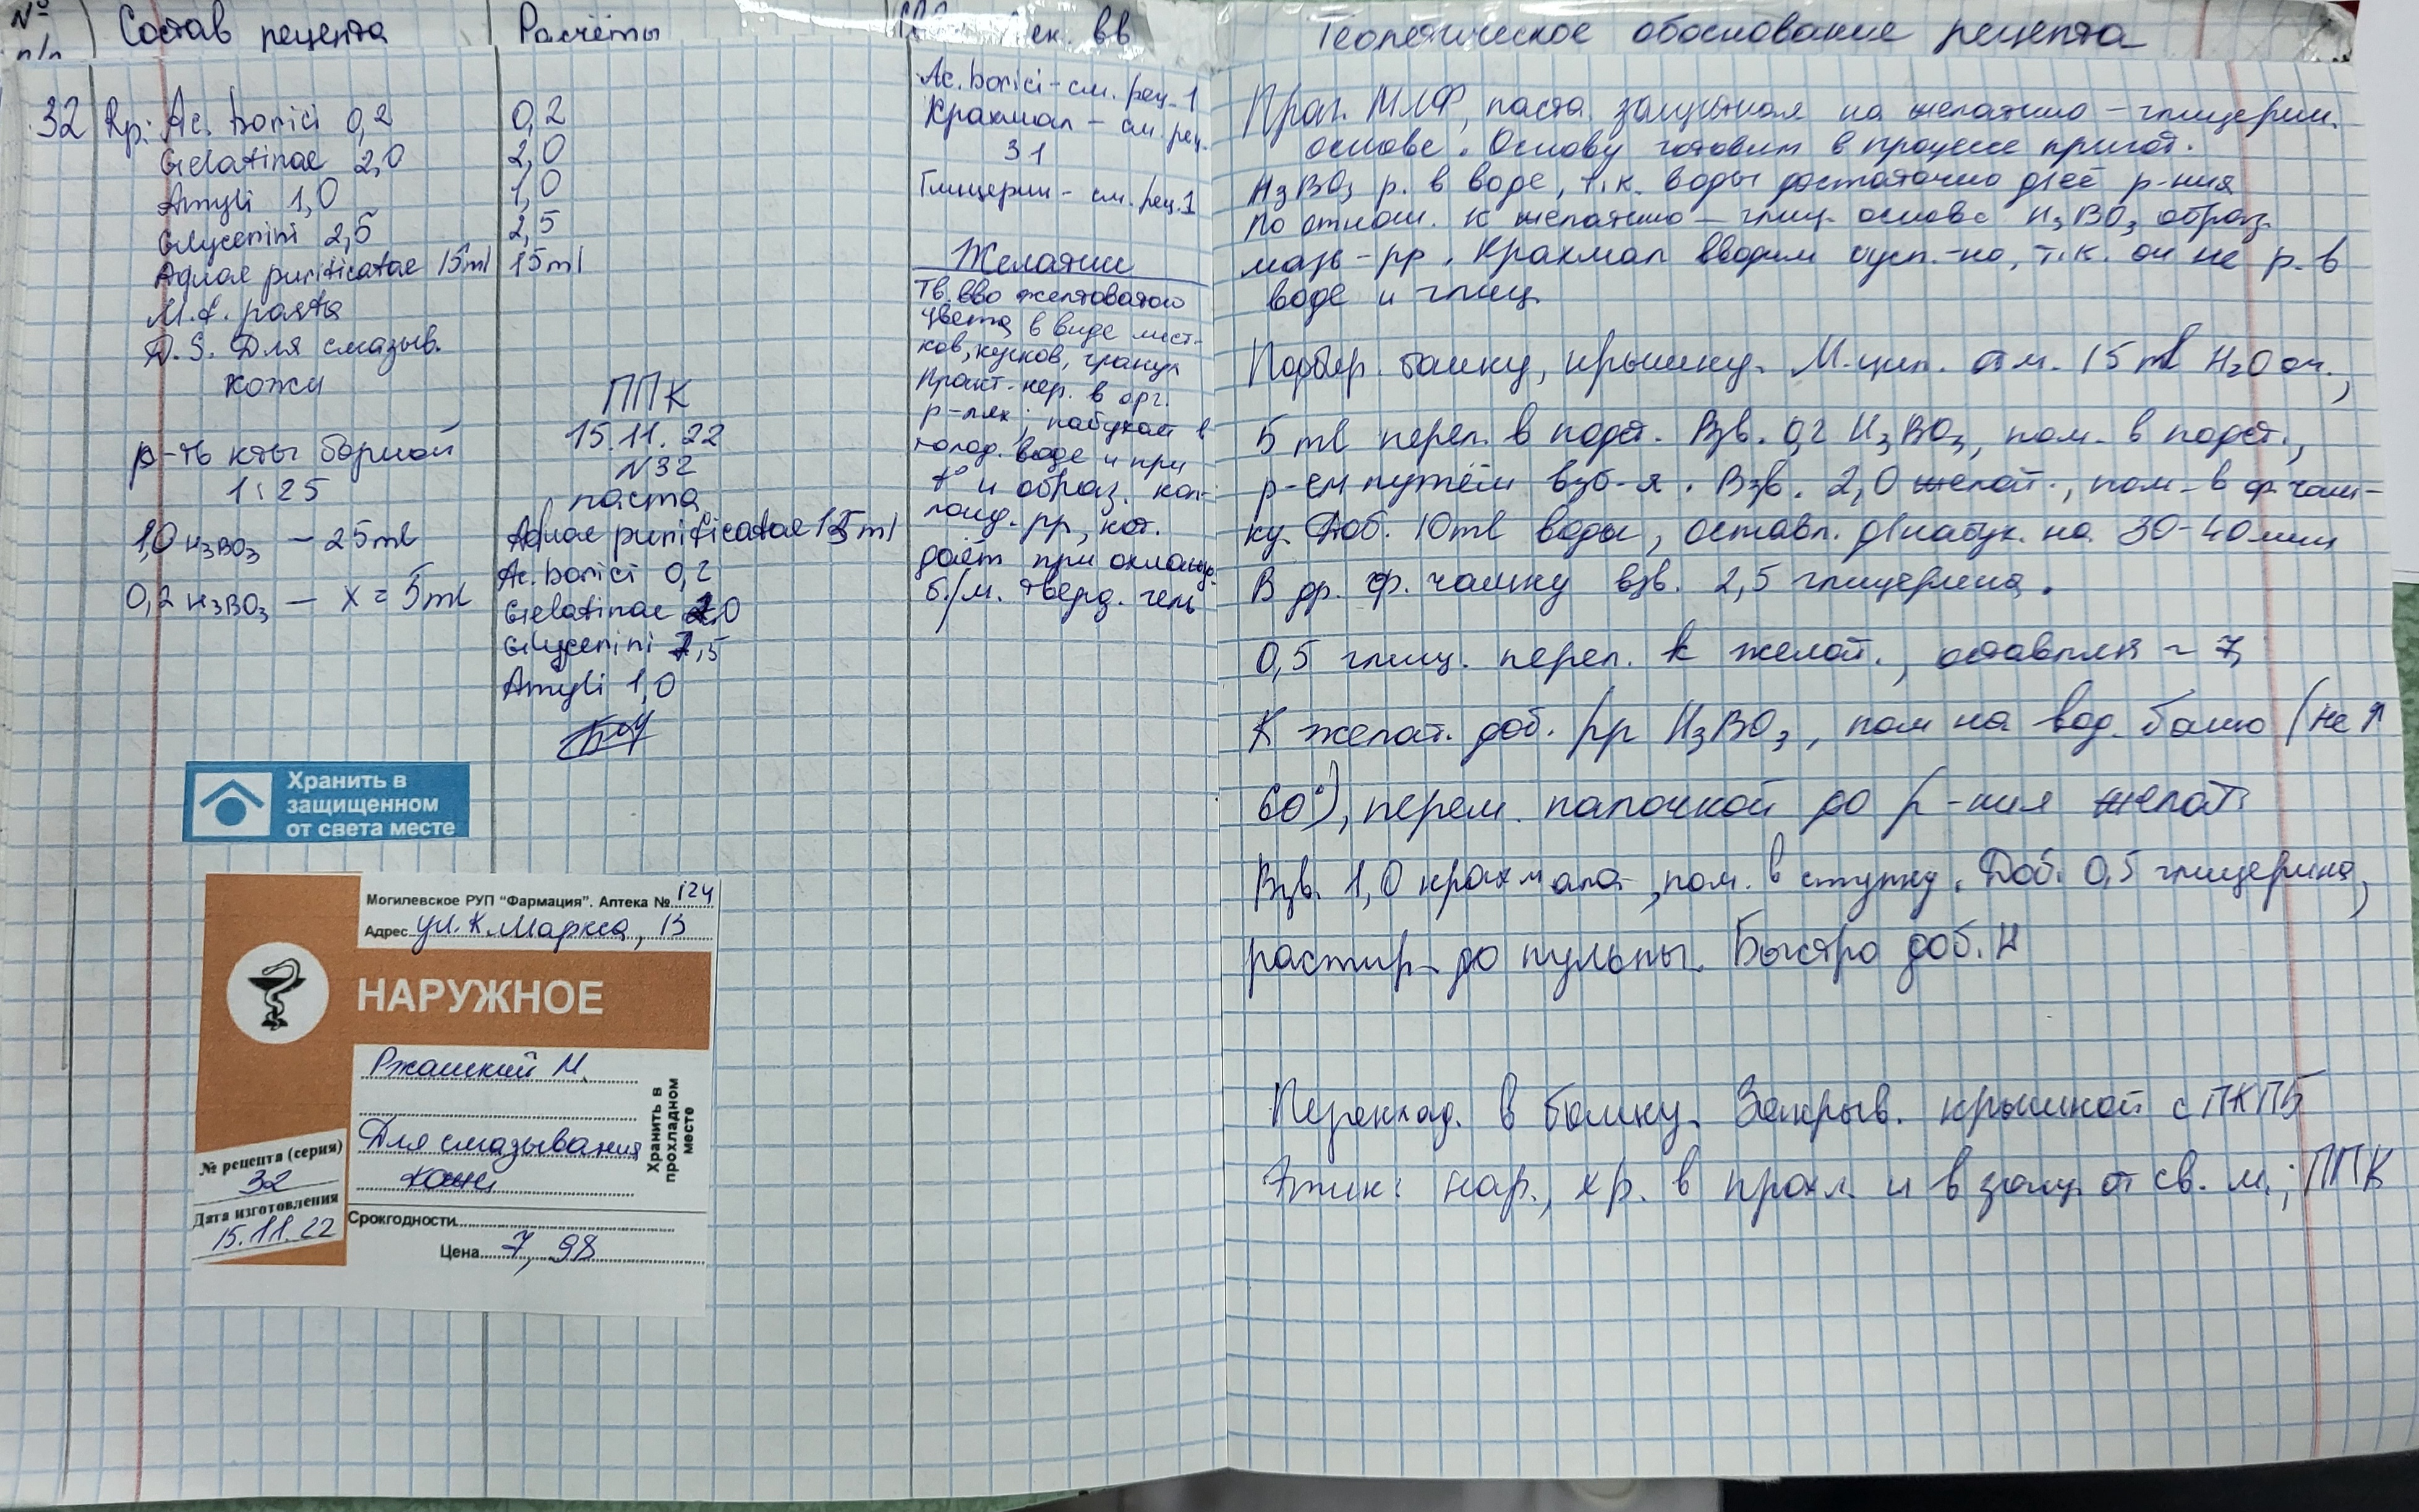 № п/п
Состав рецепта
Расчёты
ек. вв
Теоретическое обоснование рецепта
32 Rp: Ac. borici 0,2
Gelatinae 2,0
Amyli 1,0
Glycerini 2,5
Aquae purificatae 15ml
M.f. pasta
D.S. Для смазыв.
кожи
р-ть к-ты борной
1:25
1,0 H₃BO₃ – 25ml
0,2 H₃BO₃ – x = 5ml
0,2
2,0
1,0
2,5
15ml
ППК
15.11.22
N32
паста
Aquae purificatae 15ml
Ac. borici 0,2
Gelatinae 2,0
Glycerini 2,5
Amyli 1,0
Ac. borici – см. рец. 1
Крахмал – см. рец.
31
Глицерин – см. рец. 1
Желатин
Тв. вво желтоватого
цвета, в виде лист-
ков, кусков, гранул
Практ. нер. в орг.
р-лях; набухает в
холод. воде и при
t° и образ. кол-
лоид. рр, кот.
даёт при охлажд.
б./м. тверд. гель
Хранить в
защищенном
от света месте
Могилевское РУП "Фармация". Аптека № 124
Адрес ул. К. Маркса, 13
НАРУЖНОЕ
М.
Для смазывания
кожи
Хранить в
прохладном
месте
№ рецепта (серия)
32
Дата изготовления
15.11.22
Срокгодности
Цена 7,98
МЛФ, паста защитная на желатино – глицерин.
основе. Основу готовим в процессе пригот.
H₃BO₃ р. в воде, т.к. воды достаточно д/её р-ния
По отнош. к желатино – глиц. основе H₃BO₃ образ.
мазь-рр. Крахмал вводим сусп.-но, т.к. он не р. в
воде и глиц.
Подбир. банку, крышку. М. цил. отм. 15 ml H₂O оч.,
5 ml перел. в подст. Взв. 0,2 H₃BO₃, пом. в подст.,
р-ем путём взб-я. Взв. 2,0 желат., пом. в ф. чаш-
ку. Доб. 10ml воды, оставл. д/набух. на 30-40 мин
В др. ф. чашку взв. 2,5 глицерина.
0,5 глиц. перел. к желат., оставляя ~
К желат. доб. рр H₃BO₃, пом на вод. баню (не ↑
60°), перем. палочкой до р-ния желат.
Взв. 1,0 крахмала, пом. в ступку. Доб. 0,5 глицерина,
растир. до пульпы. Быстро доб. н
Переклад. в банку. Закрыв. крышкой с ПКПБ
Этик: нар., хр. в прохл. и в защ. от св. м.; ППК